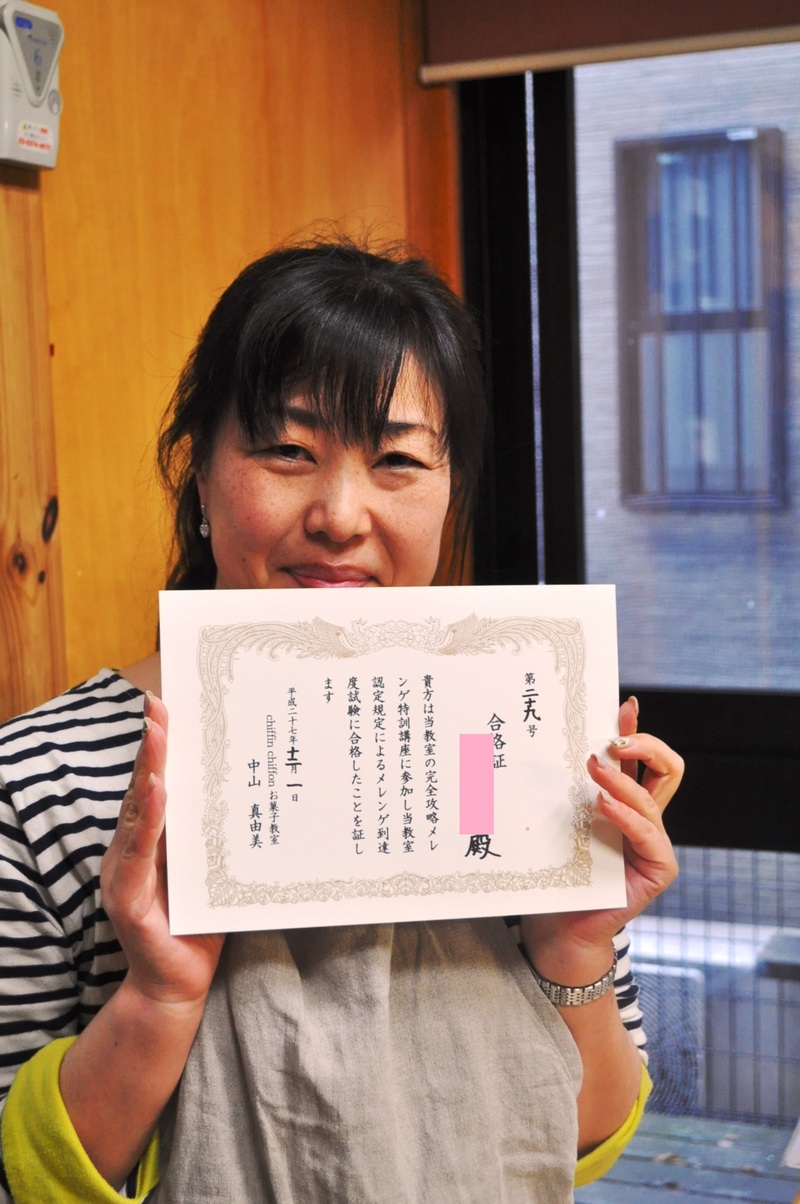 第二十九号
合格証
殿
貴方は当教室の完全攻略メレ
ンゲ特訓講座に参加し当教室
認定規定によるメレンゲ到達
度試験に合格したことを証し
ます
平成二十七年十二月一日
chiffin chiffon お菓子教室
中山 真由美